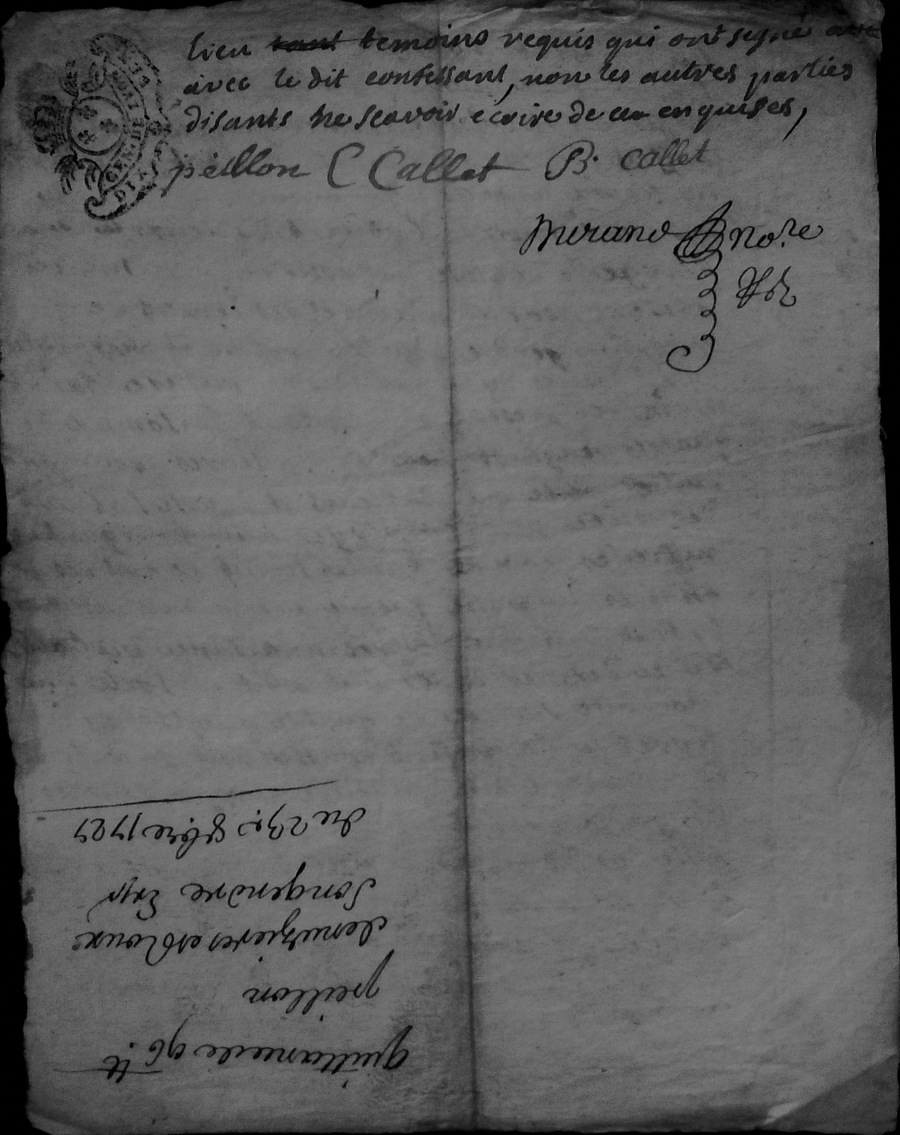 lieu tant temoins requis qui ont signé avec
avec le dit confessant, non les autres parties
disants ne scavoir écrire de ce enquises,
peillon C Callet B. callet
Murand no.re
quittance de 96 lt
peillon
Songendre
du 23e 8bre 1727